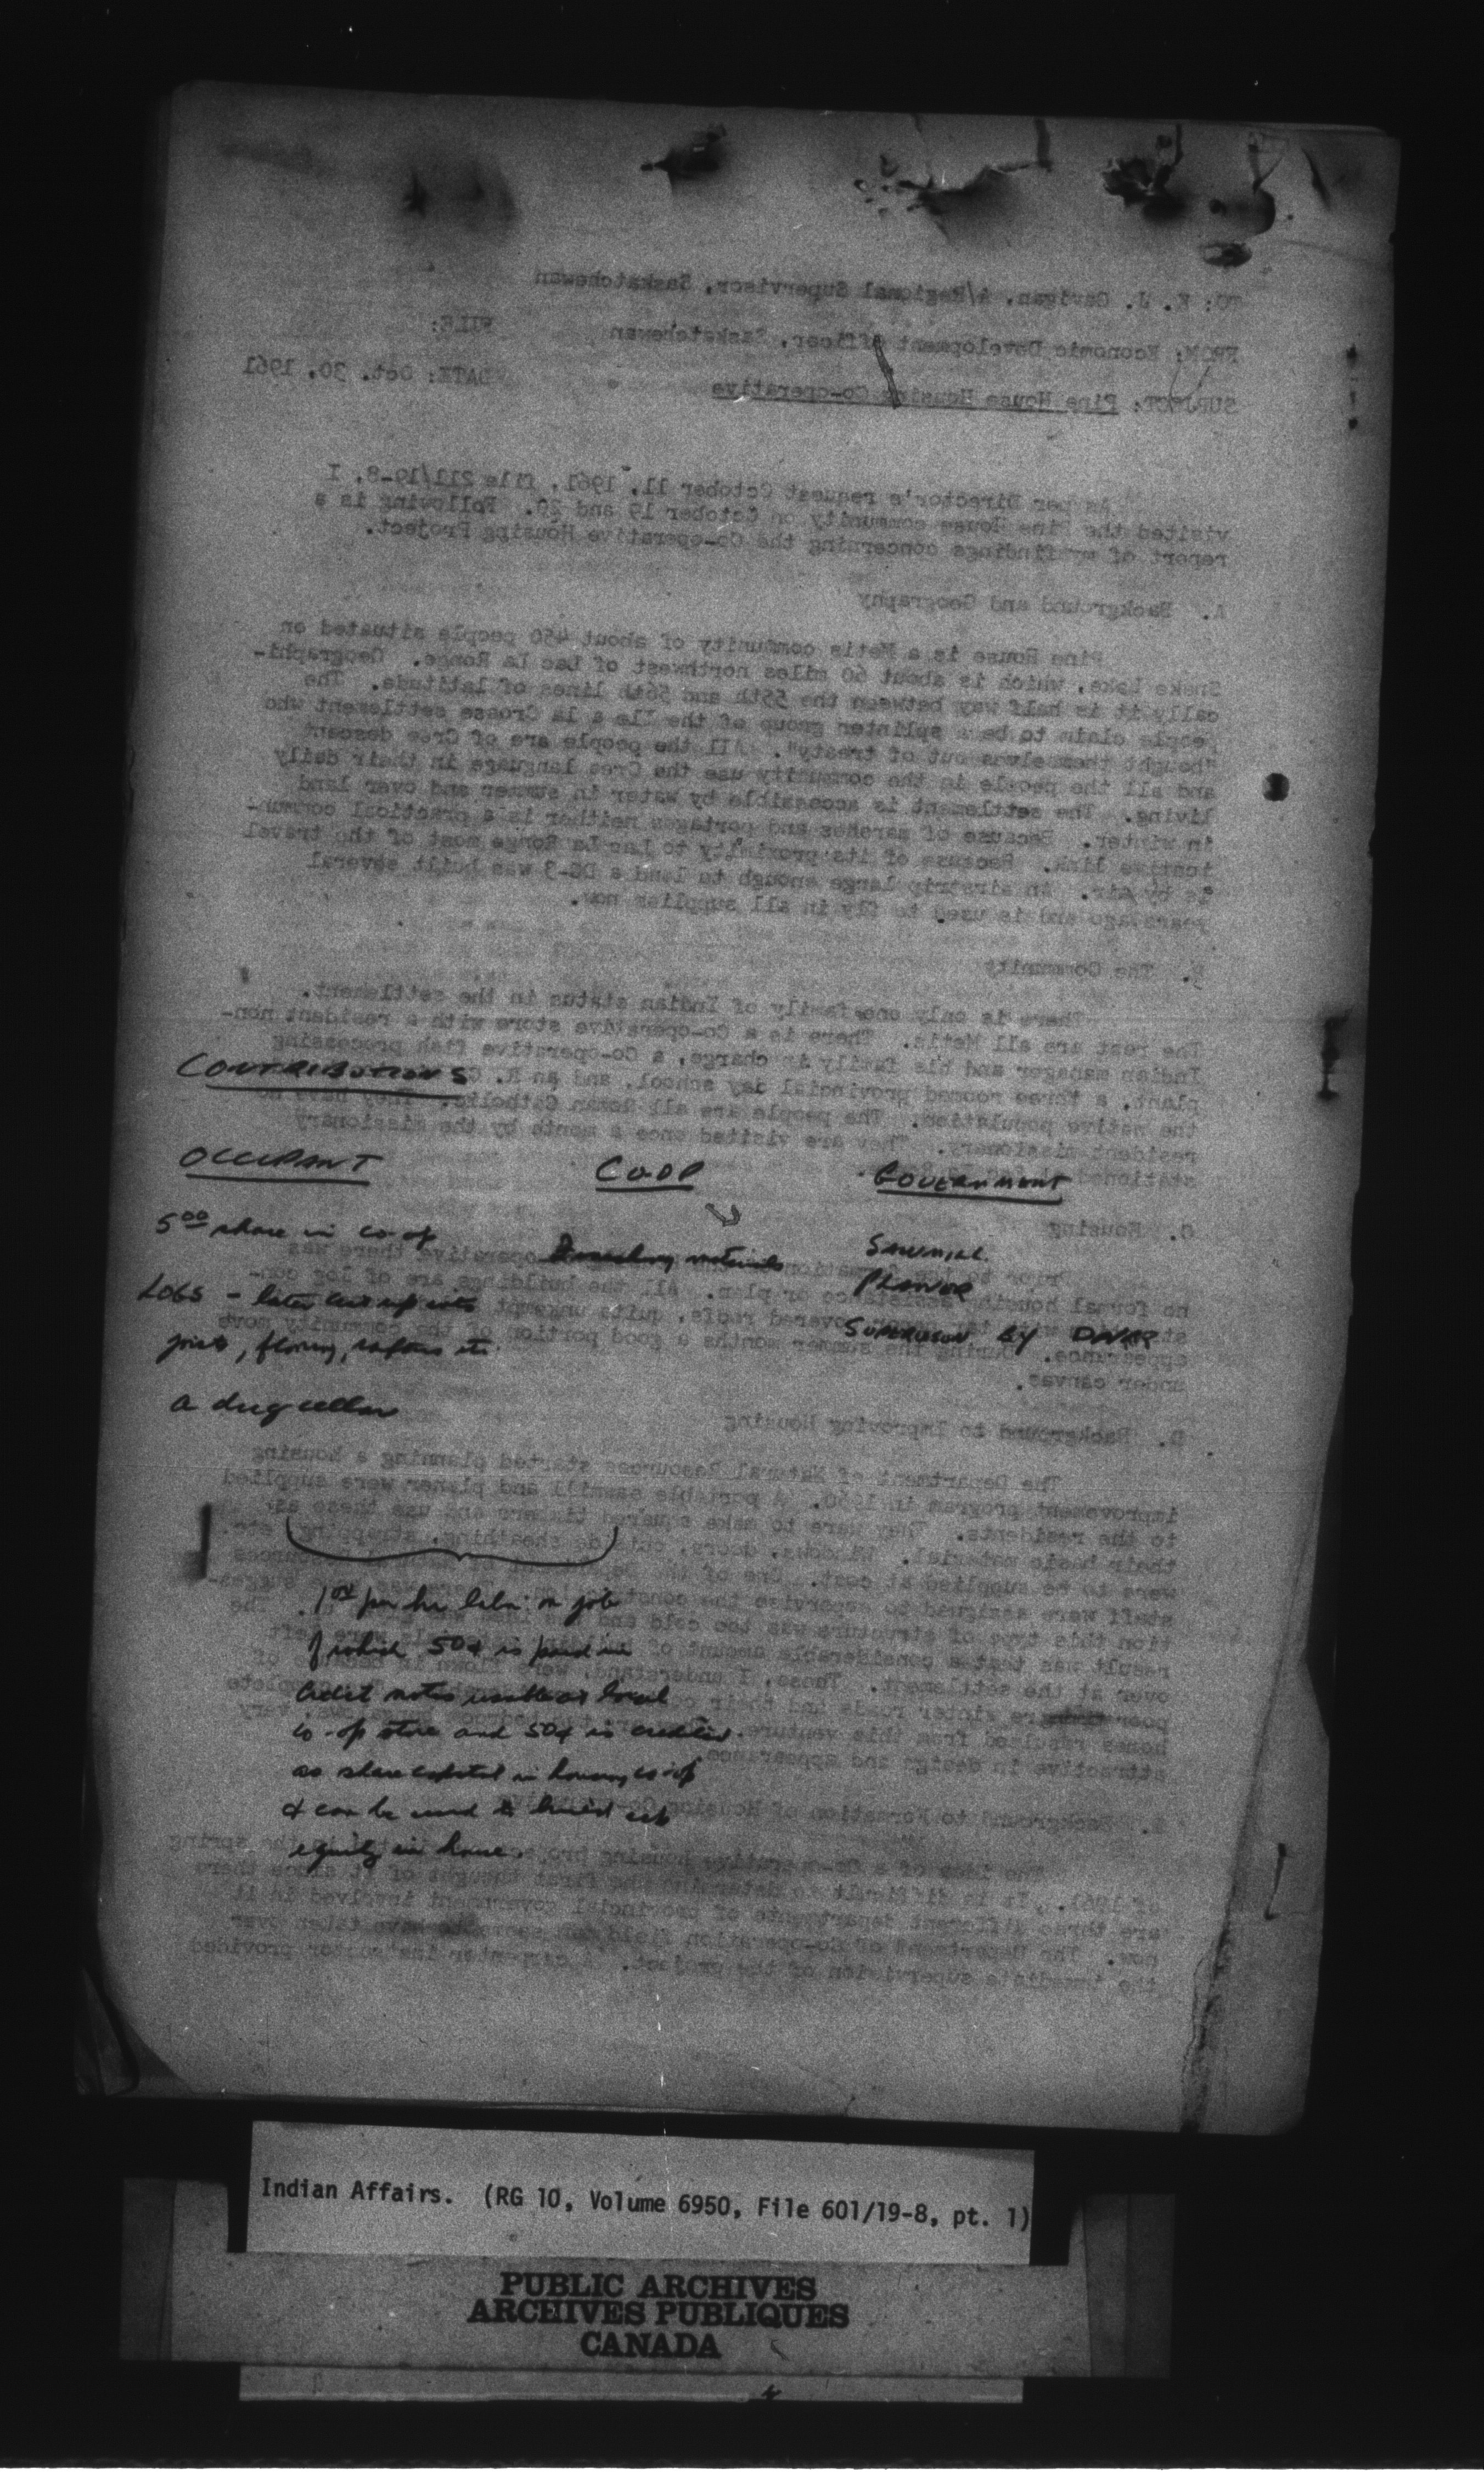 TO: K. J. Gavigan, A/Regional Supervisor, Saskatchewan
FROM: Economic Development Officer, Saskatchewan FILE:
DATE: Oct. 30, 1961
SUBJECT: Pine House Housing Co-operative
As per Director's request October 11, 1961, file 211/19-8, I
visited the Pine House community on October 19 and 20. Following is a
report of my findings concerning the Co-operative Housing Project.
A. Background and Geography
Pine House is a Metis community of about 450 people situated on
Snake Lake, which is about 60 miles northwest of Lac La Ronge. Geographi-
cally it is half way between the 55th and 56th lines of latitude. The
people claim to be a splinter group of the Ile a la Crosse settlement who
"bought themselves out of treaty". All the people are of Cree descent
and all the people in the community use the Cree language in their daily
living. The settlement is accessible by water in summer and over land
in winter. Because of marshes and portages neither is a practical commun-
icative link. Because of its proximity to Lac La Ronge most of the travel
is by air. An airstrip large enough to land a DC-3 was built several
years ago and is used to fly in all supplies now.
B. The Community
There is only one family of Indian status in the settlement.
The rest are all Metis. There is a Co-operative store with a resident non-
Indian manager and his family in charge, a Co-operative fish processing
plant, a three roomed provincial day school, and an R. C.
the native population. The people are all Roman Catholic. They have no
resident missionary. They are visited once a month by the missionary
stationed at
C. Housing
Prior to the formation operative there was
no formal housing assistance or plan. All the buildings are of log con-
covered roofs, quite unkempt
appearance. During the summer months a good portion of the community move
under canvas.
D. Background to Improving Housing
The Department of Natural Resources started planning a housing
improvement program in 1960. A portable sawmill and planer were supplied
to the residents. They were to make squared timbers and use these as
their basic material. Windows, doors, outside sheathing, strapping, etc.
were to be supplied at cost. One of the Department of Natural Resources
staff were assigned to supervise the construction. sugges-
tion this type of structure was too cold and The
result was that a considerable amount of were left
over at the settlement. These, I understand, were flown in because of
poor winter roads and their complete
homes resulted from this venture. very
attractive in design and appearance.
E. Background to Formation of Housing Co-operative
The idea of a Co-operative housing the spring
of 1961. It is difficult to determine who first thought of it since there
are three different departments of provincial government involved in it
now. The Department of Co-operation field men have taken over
the immediate supervision of the project. A carpenter instructor provided
CONTRIBUTIONS
OCCUPANT COOP GOVERNMENT
5.00 share in co-op materials SAWMILL
LOGS - later cut up into PLANER
joists, flooring, rafters etc. SUPERVISION BY DNR
a dug cellar
1.00 per hr labor on job
of which 50¢ is paid in
credit notes usable at local
co-op store and 50¢ is credited
as share capital in housing co-op
& can be used to build up
equity in house.
Indian Affairs. (RG 10, Volume 6950, File 601/19-8, pt. 1)
PUBLIC ARCHIVES
ARCHIVES PUBLIQUES
CANADA